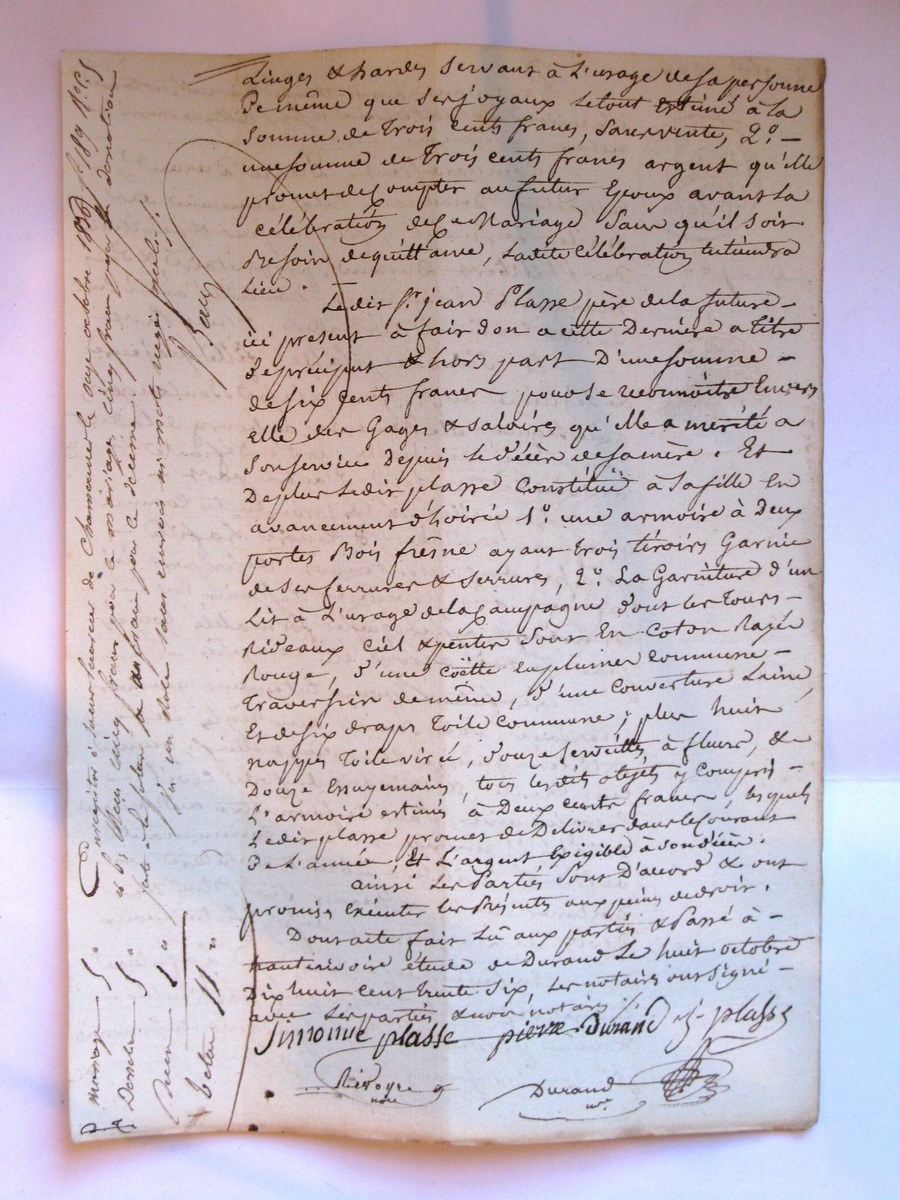 Linges & hardes servant à l'usage de sa personne
De même que ses joyaux le tout Estimé à la
somme de trois cents francs, sans vente, 2.° –
une somme de trois cents francs argent qu'elle
promet de Compter au futur Epoux avant la
célébration de ce Mariage Sans qu'il soit
Besoin de quittance, ladite Célébration en tiendra
Lieu.
Ledit Sr. jean Plasse père de la future –
ici present à fait don a cette Derniere a titre
De préciput & hors part D'une somme –
de six Cents francs pour se reconnoitre Envers
elle des Gages & salaires qu'elle a merité a
son service Depuis le décès de sa mère. Et
De plus Ledit plasse Constitüe à sa fille En
avancement d'hoirie 1.° une armoire à Deux
portes Bois fresne ayant trois tiroirs Garnie
de ses ferrures & serrures, 2.° La Garniture d'un
Lit à L'usage de la Campagne dont les tours –
Rideaux Ciel & pentes sont En Coton Rayé
Rouge, D'une coëtte en plumes commune –
Traversier de même, D'une couverture Laine
Et de six draps toile Commune; plus huit
nappes Toile, Douze serviettes à fleurs, &
Douze Essuyemains, tous lesdits objets y Compris –
L'armoire estimés à Deux cents francs, lesquels
Ledit plasse promet de Délivrer dans le Courant
De L'année, Et L'argent Exigible à son décès.
ainsi Les Parties sont D'accord & ont
promis Exécuter les Présentes aux peines de droit.
Dont acte fait Lû aux parties & Passé à –
hauterivoire étude de Durand Le huit octobre
Dix huit Cent trente six, Les notaires ont signé –
avec Les parties
simonne plasse pierre Durand J. plasse
Rivoyre nore
Durand nre
Enregistré à bureau de Chamousset le onze octobre 1836 f° 189
Reçu cinq francs pour le mariage, cinq francs pour la donation
faite à la future & un franc pour le décime.
mariage 5 "
Donation 5 "
Dixme 1 "
Total 11 "